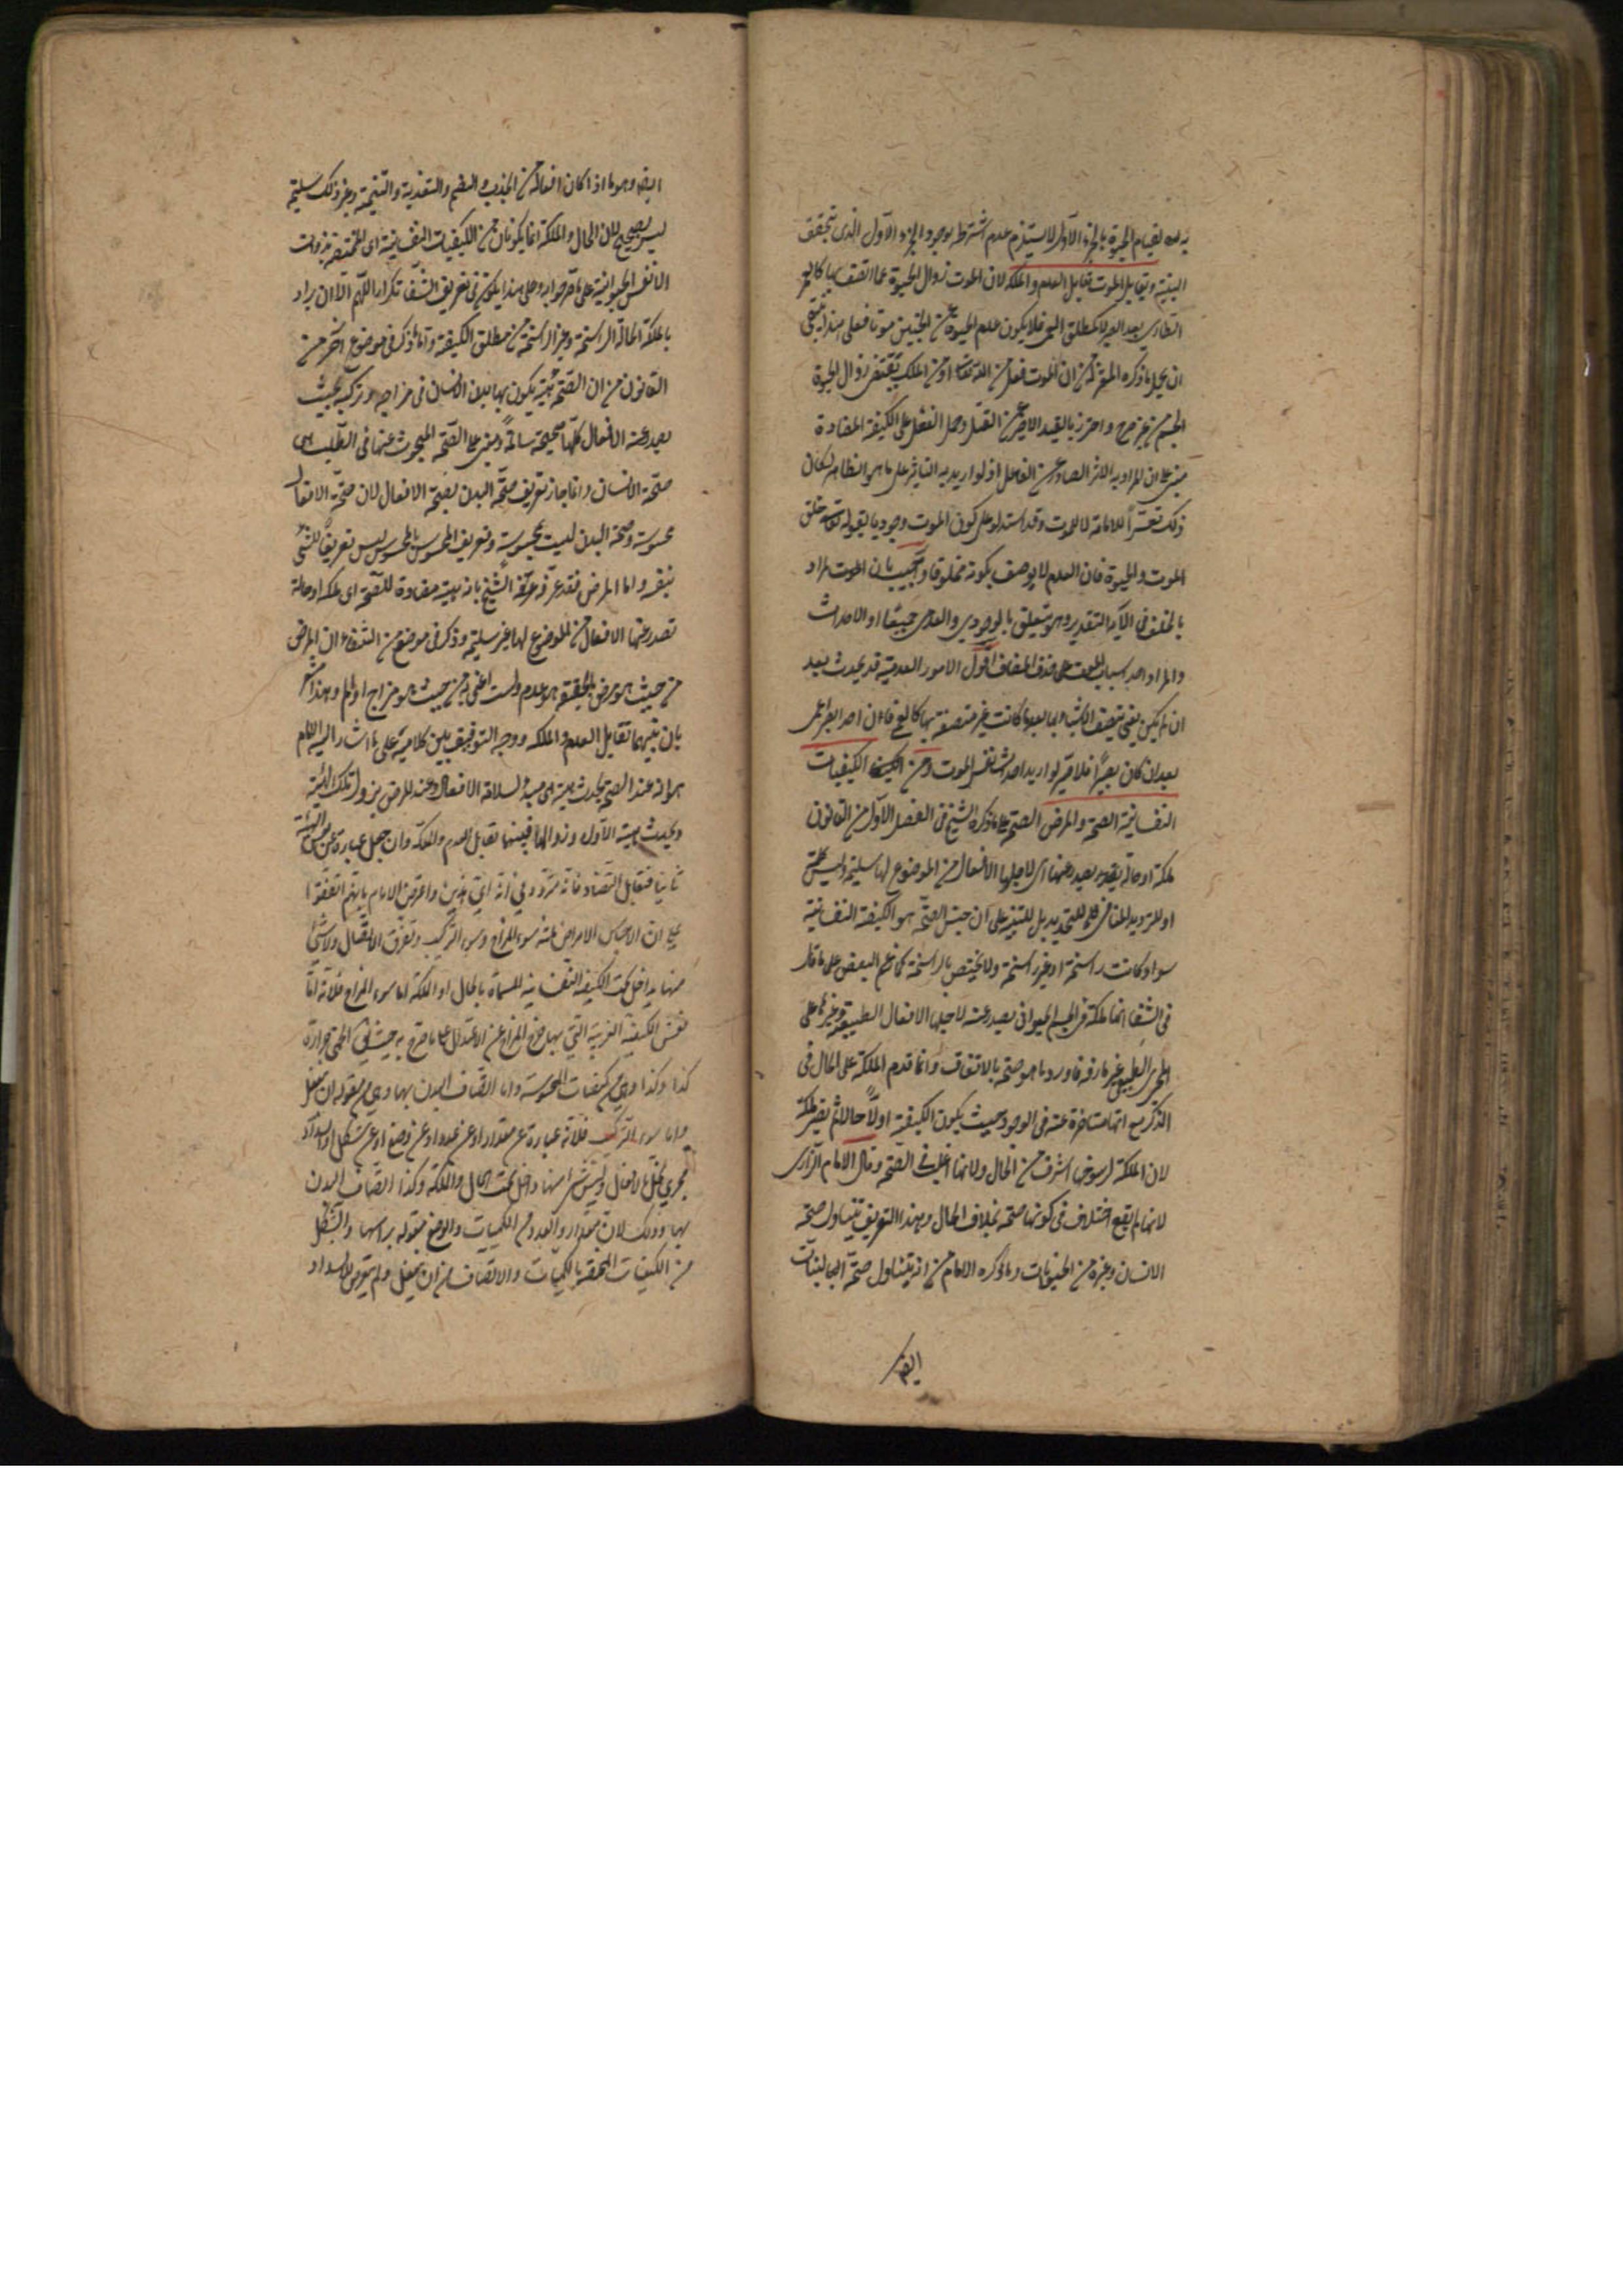 لقيام الحيوة بالجزء الاول لا يستلزم عدم اشتراط بوجود الجزء الاول الذي يتحقق
البنية وتقابل الموت تقابل العدم والملكة لان الموت زوال الحيوة عما اتصف بها كالعمى
الطاري بعد البصر لا كمطلق العمى فلا يكون عدم الحيوة عن الجنين موتا فعلى هذا ينبغي
ان يحمل ما ذكره المعتزلة من ان الموت فعل من الله تعالى او من الملك يقتضى زوال الحيوة
الجسم من غير جرح واحترز بالقيد الاخير عن القتل وحمل الفعل على الكيفية المضادة
مبنى على ان المراد به الاثر الصادر عن الفاعل اذ لو اريد به التاثير على ما هو الظاهر لكان
ذلك تفسيرا للاماتة لا للموت وقد استدل على كون الموت وجوديا بقوله تعالى خلق
الموت والحيوة فان العدم لا يوصف بكونه مخلوقا واجيب بان الموت المراد
بالخلق فى الآية التقدير وهو يتعلق بالوجودي والعدمي جميعا او الاحداث
والمراد احد اسباب الموت على حذف المضاف اقول الامور العدمية قد يحدث بعد
ان لم يكن يعني يتصف الاشياء بها بعد ما كانت غير متصفة بها كالعمى فان احد البصر اعمى
بعد ان كان بصيرا فلا ضير لو اريد احداث نفس الموت ومن الكيفيات
النفسانية الصحة والمرض الصحة على ما ذكره الشيخ فى الفصل الاول من القانون
ملكة او حالة يصدر عنها اى لاجلها الافعال من الموضوع لها سليمة وليس كلمة
او للترديد المنافي للتحديد بل للتنبيه على ان جنس الصحة هو الكيفية النفسانية
سواء كانت راسخة او غير راسخة ولا يختص بالراسخة كما زعم البعض على ما قال
فى الشفا انها ملكة فى الجسم الحيوانى يصدر عنه لاجلها الافعال الطبيعية وغيرها على
المجرى الطبيعي غير ماوفة فاورد ما هو صحة بالاتفاق وانما قدم الملكة على الحال فى
الذكر مع انها متاخرة عنه فى الوجود حيث يكون الكيفية اولا حالا ثم يصير ملكة
لان الملكة لرسوخها اشرف من الحال ولانها اغلب فى الصحة وقال الامام الرازي
لانها لم يقع اختلاف فى كونها صحة بخلاف الحال وبهذا التعريف يتناول صحة
الانسان وغيره من الحيوانات وما ذكره الامام من انه يتناول صحة النباتات
ايضا
ايضا وهو ما اذا كان افعاله من الجذب والهضم والتغذية والتنمية وغير ذلك سليمة
ليس بصحيح لان الحال والملكة انما يكونان من الكيفيات النفسانية اى المختصة بذوات
الانفس الحيوانية على ما صرحوا به وعلى هذا يكون فى تعريف الشفا تكرار اللهم الا ان يراد
بالملكة الحالة الراسخة وغير الراسخة من مطلق الكيفية واما ما ذكر فى موضع آخر من
القانون من ان الصحة هيئة يكون بها بدن الانسان فى مزاجه وتركيبه بحيث
يصدر عنه الافعال كلها صحيحة سالمة ومبنى على الصحة المبحوث عنها فى الطب هى
صحة الانسان وانما جاز تعريف صحة البدن بصحة الافعال لان صحة الافعال
محسوسة وصحة البدن ليست بمحسوسة وتعريف غير المحسوس بالمحسوس ليس تعريفا للشيء
بنفسه واما المرض فقد عرفه الشيخ بانه هيئة مضادة للصحة اى ملكة او حالة
تصدر عنها الافعال من الموضوع لها غير سليمة وذكر فى موضع من الشفاء ان المرض
من حيث هو مرض بالحقيقة هو عدم ولست اعني من حيث هو مزاج او الم وهذا
بان بينهما تقابل العدم والملكة ووجه التوفيق بين كلاميه على ما اشار اليه الامام
هو انه عند الصحة يحدث هيئة هى مبدأ لسلامة الافعال وعند المرض يزول تلك الهيئة
ويحدث هيئة الاول وزوالها فبينهما تقابل العدم والملكة وان جعل عبارة عن نفس الهيئة
ثانيا فتقابل التضاد واعترض الامام بانهم اتفقوا
على ان الاجناس الامراض ثلثة سوء المزاج وسوء التركيب وتفرق الاتصال ولا شيء
منها بداخل تحت الكيفية النفسانية المسماة بالحال او الملكة اما سوء المزاج فلانه اما
نفس الكيفية الغريبة التي بها خرج المزاج عن الاعتدال على ما صرح به حيث يقال الحمى حرارة
كذا وكذا وهى من كيفيات المحسوسة واما اتصاف البدن بها وهى من مقولة ان ينفعل
واما سوء التركيب فلانه عبارة عن مقدار او عن عدد او عن وضع او عن شكل او انسداد
مجرى يخل بالافعال وليس شيء منها داخل تحت الحال والملكة وكذا اتصاف البدن
بها وذلك لان المقدار والعدد من الكميات والوضع مقولة براسها والشكل
من الكيفيات المختصة بالكميات والاتصاف من ان ينفعل ولم يتعرض للانسداد